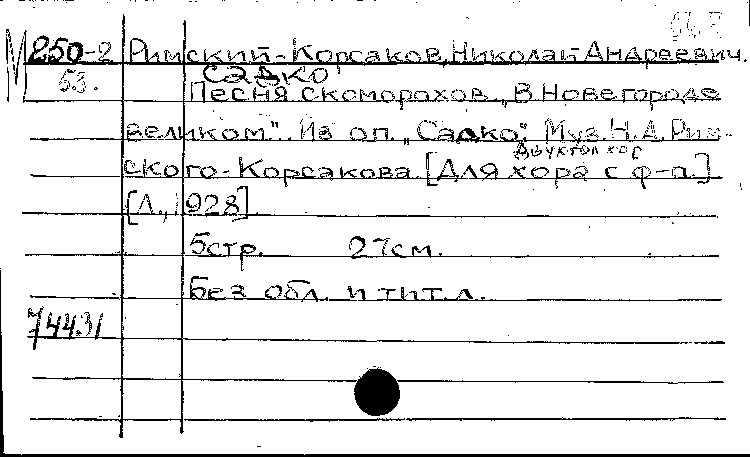 М 250-2 Римский-Корсаков, Николай Андреевич.
53. Садко
Песня скоморохов „В Новегороде
великом". Из оп. „Садко". Муз. Н.А. Рим-
ского-Корсакова. [Для хора с ф-п.]
[Л., 1928].
5стр. 27см.
Без обл. и тит. л.
74431